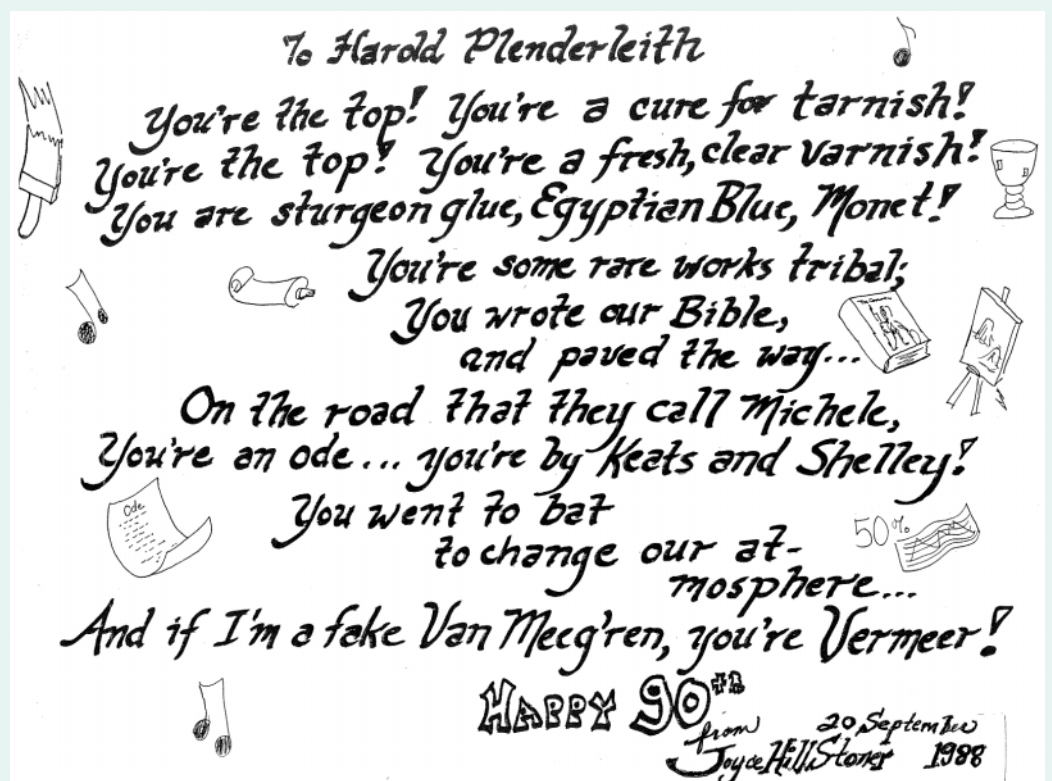 To Harold Plenderleith
You're the top! You're a cure for tarnish!
You're the top! You're a fresh, clear varnish!
You are sturgeon glue, Egyptian Blue, Monet!
You're some rare works tribal;
You wrote our Bible,
and paved the way...
On the road that they call Michele,
You're an ode... you're by Keats and Shelley!
Ode
You went to bat
50%
to change our at-
mosphere...
And if I'm a fake Van Meeg'ren, you're Vermeer!
Happy 90th
from
20 September
Joyce Hill Stoner 1988